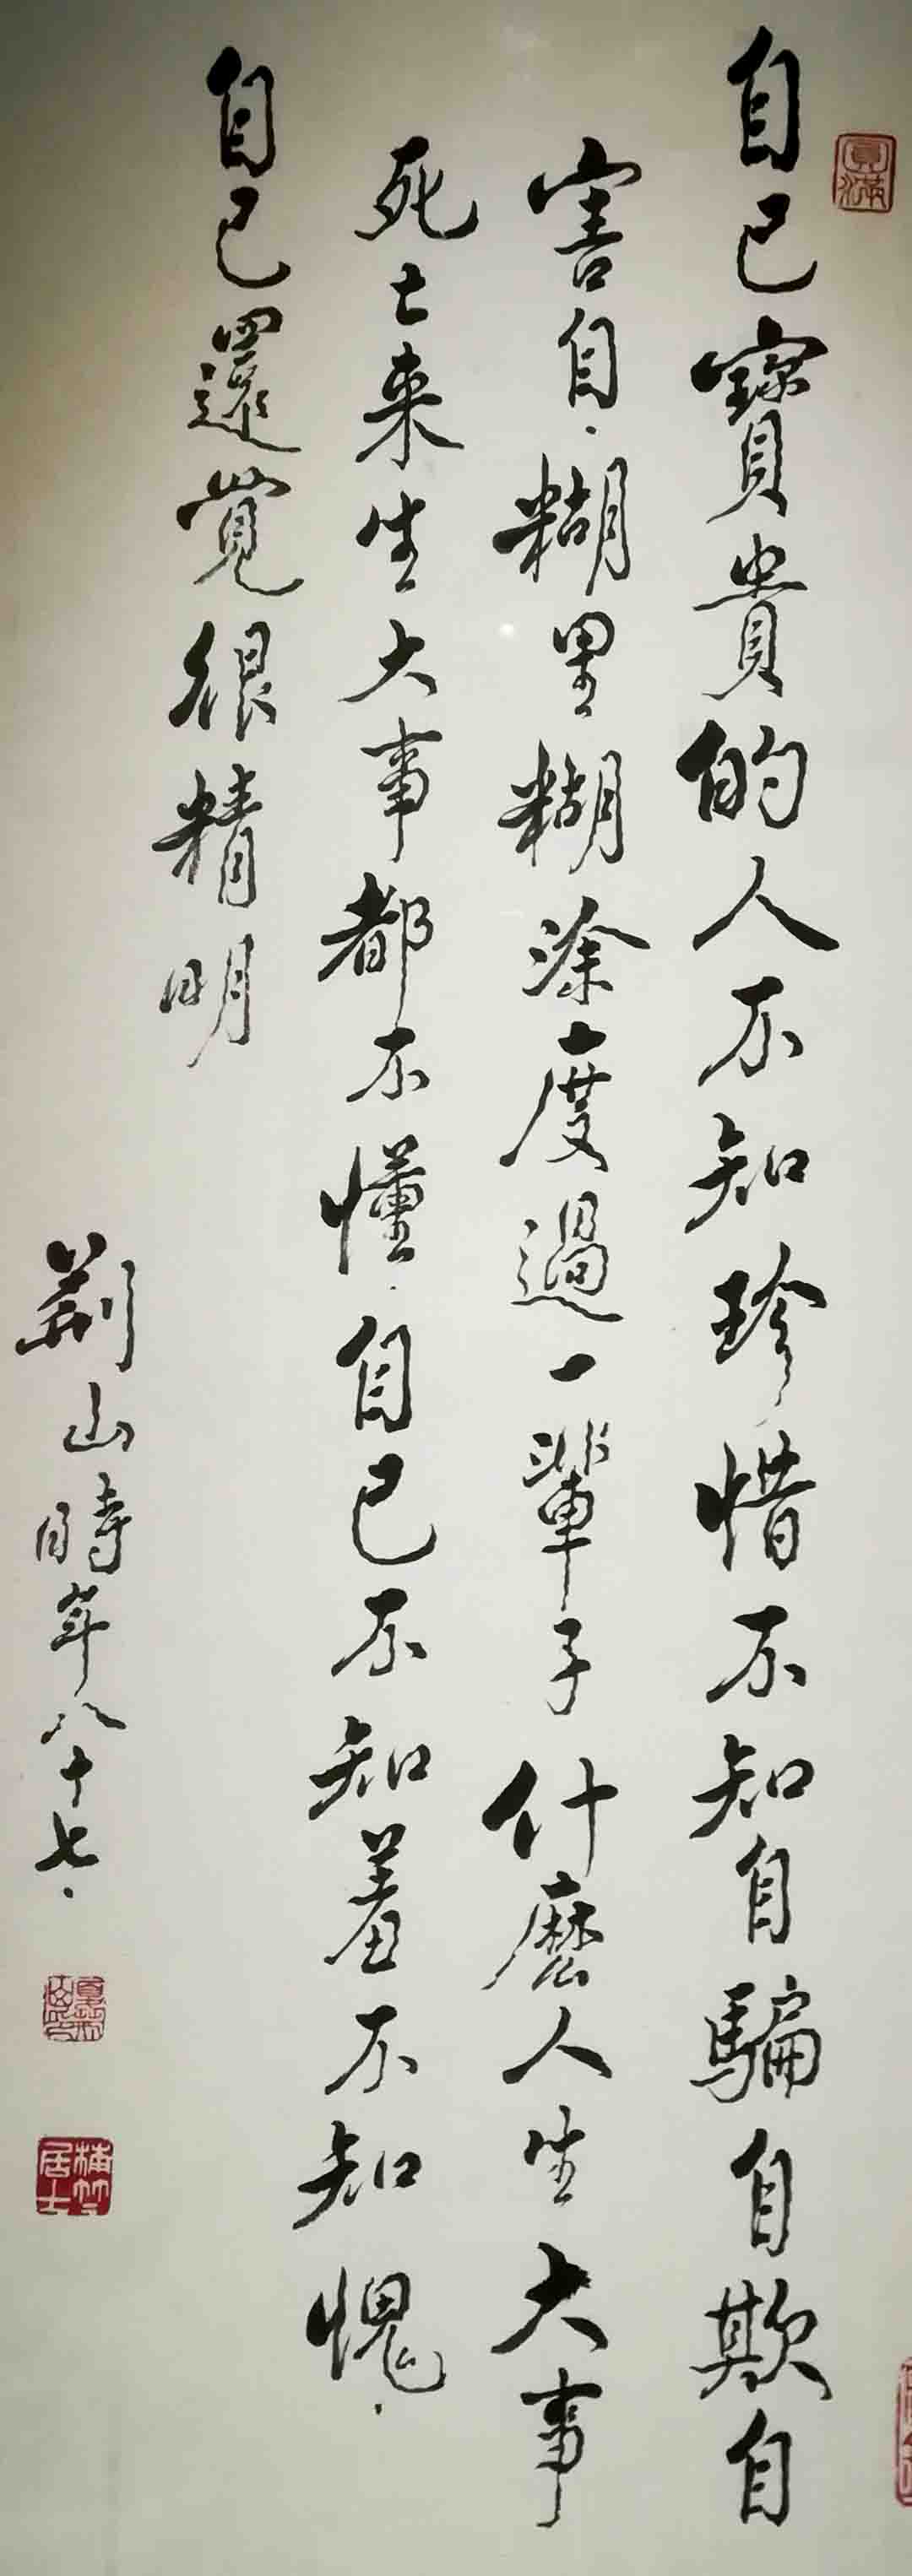 圓滿
自己寶貴的人不知珍惜不知自騙自欺自
害自糊里糊涂度過一輩子什麽人生大事
死亡来生大事都不懂自己不知羞不知愧
自己還覺很精明
荆山時年八十七
梅竹居士